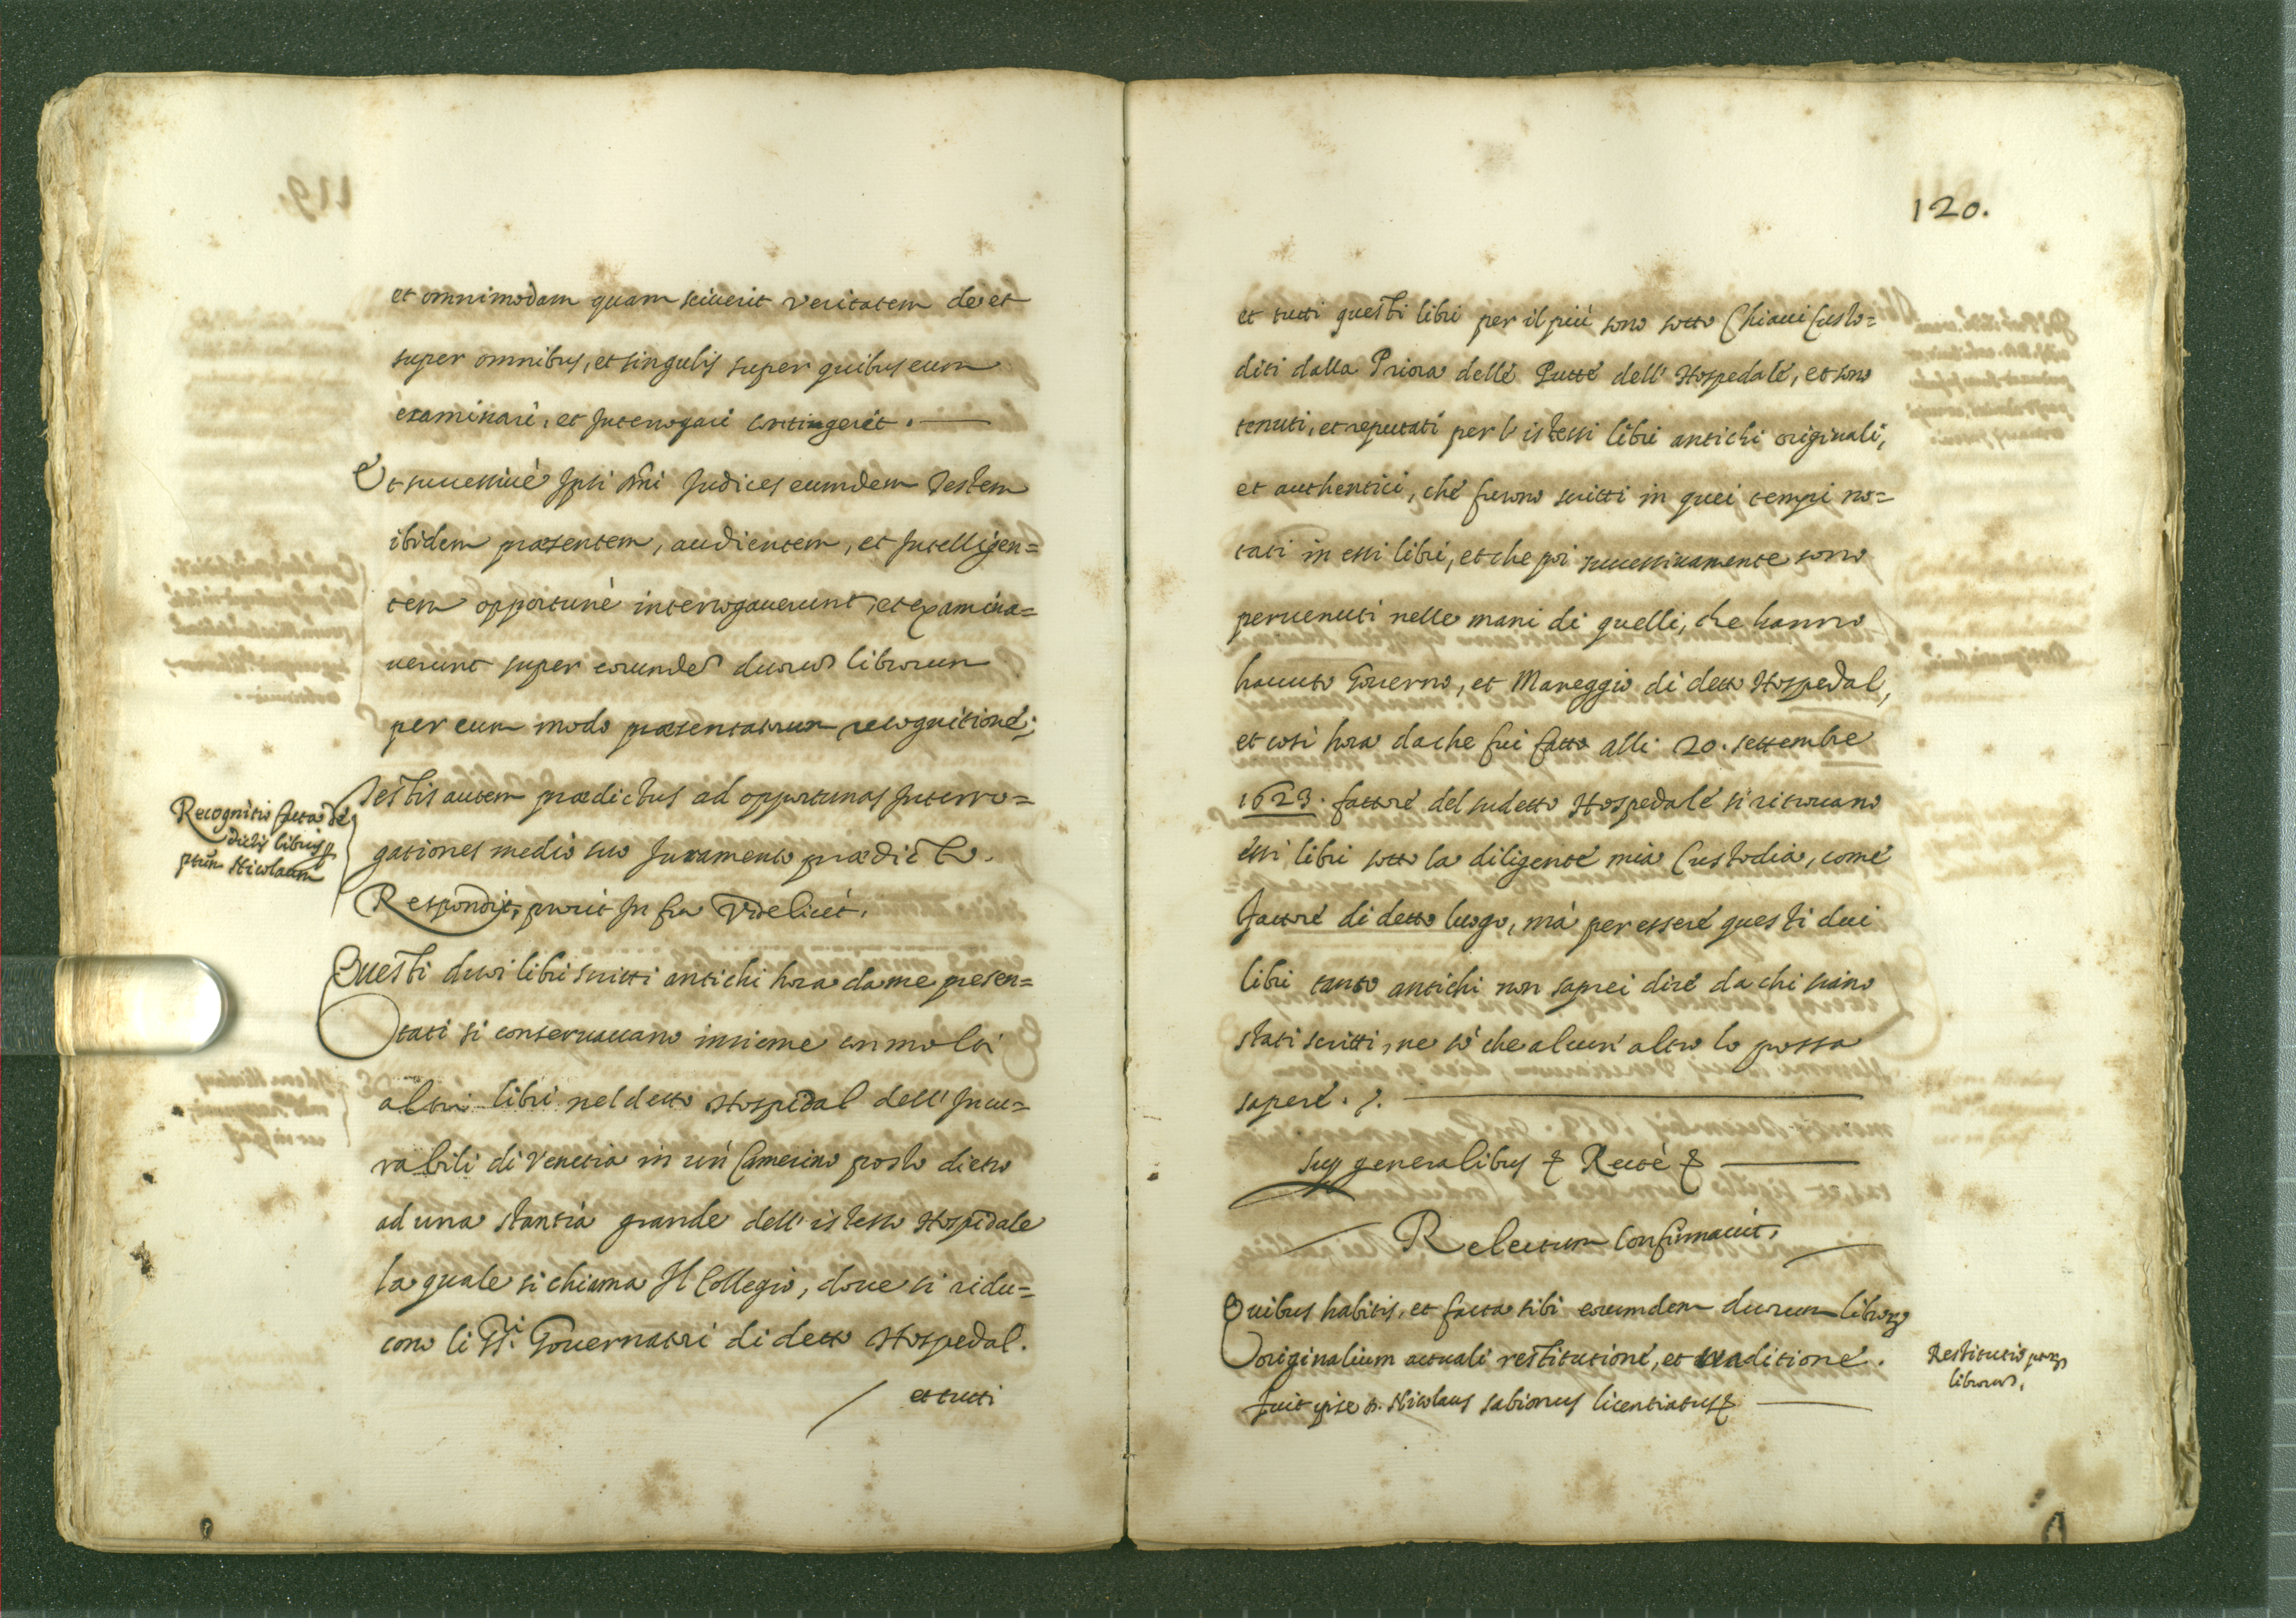 et omnimodam quam sciuerit veritatem de et
super omnibus, et singulis super quibus eum
examinari, et Interrogari contingerit.
Et successiuè Ipsi Dñi Judices eumdem Testem
ibidem præsentem, audientem, et Intelligen=
tem opportunè interrogauerunt, et examina=
uerunt super eorundẽ duorũ librorum
per eum modo præsentatorum recognitione;
Recognitio facta de
dictis libris p
ptum Nicolaum
Testis autem prædictus ad opportunas Interro=
gationes medio suo Juramento prædicto.
Respondit, prout Infra Videlicet.
Questi duoi libri scritti antichi hora da me presen=
tati si conseruauano insieme con molti
altri libri nel detto Hospidal dell' Incu=
rabili di Venetia in un' Camerino posto dietro
ad una stantia grande dell' istesso Hospidale
la quale si chiama Il Collegio, doue si ridu=
cono li SSi. Gouernatori di detto Hospedal.
et tutti
120.
et tutti questi libri per il più sono sotto Chiaui Custo=
diti dalla Priora delle Putte dell' Hospedale, et sono
tenuti, et reputati per l' istessi libri antichi originali,
et authentici, che furono scritti in quei tempi no=
tati in essi libri, et che poi successiuamente sono
peruenuti nelle mani di quelli, che hanno
hauuto Gouerno, et Maneggio di detto Hospedal,
et così hora da che fui fatto alli 20. settembre
1623. fattore del sudetto Hospedale si ritrouano
essi libri sotto la diligente mia Custodia, come
fattore di detto luogo, mà per essere questi dui
libri tanto antichi non saprei dire da chi siano
stati scritti, ne sò che alcun' altro lo possa
sapere.
sup generalibus & Rectè &
Relectum Confirmauit.
Quibus habitis, et facta sibi eorumdem duorum libroꝝ
originalium actuali restitutione, et traditione.
fuit ipse D. Nicolaus sabionus licentiatus &
Restitutio ptoꝝ
librorũ.